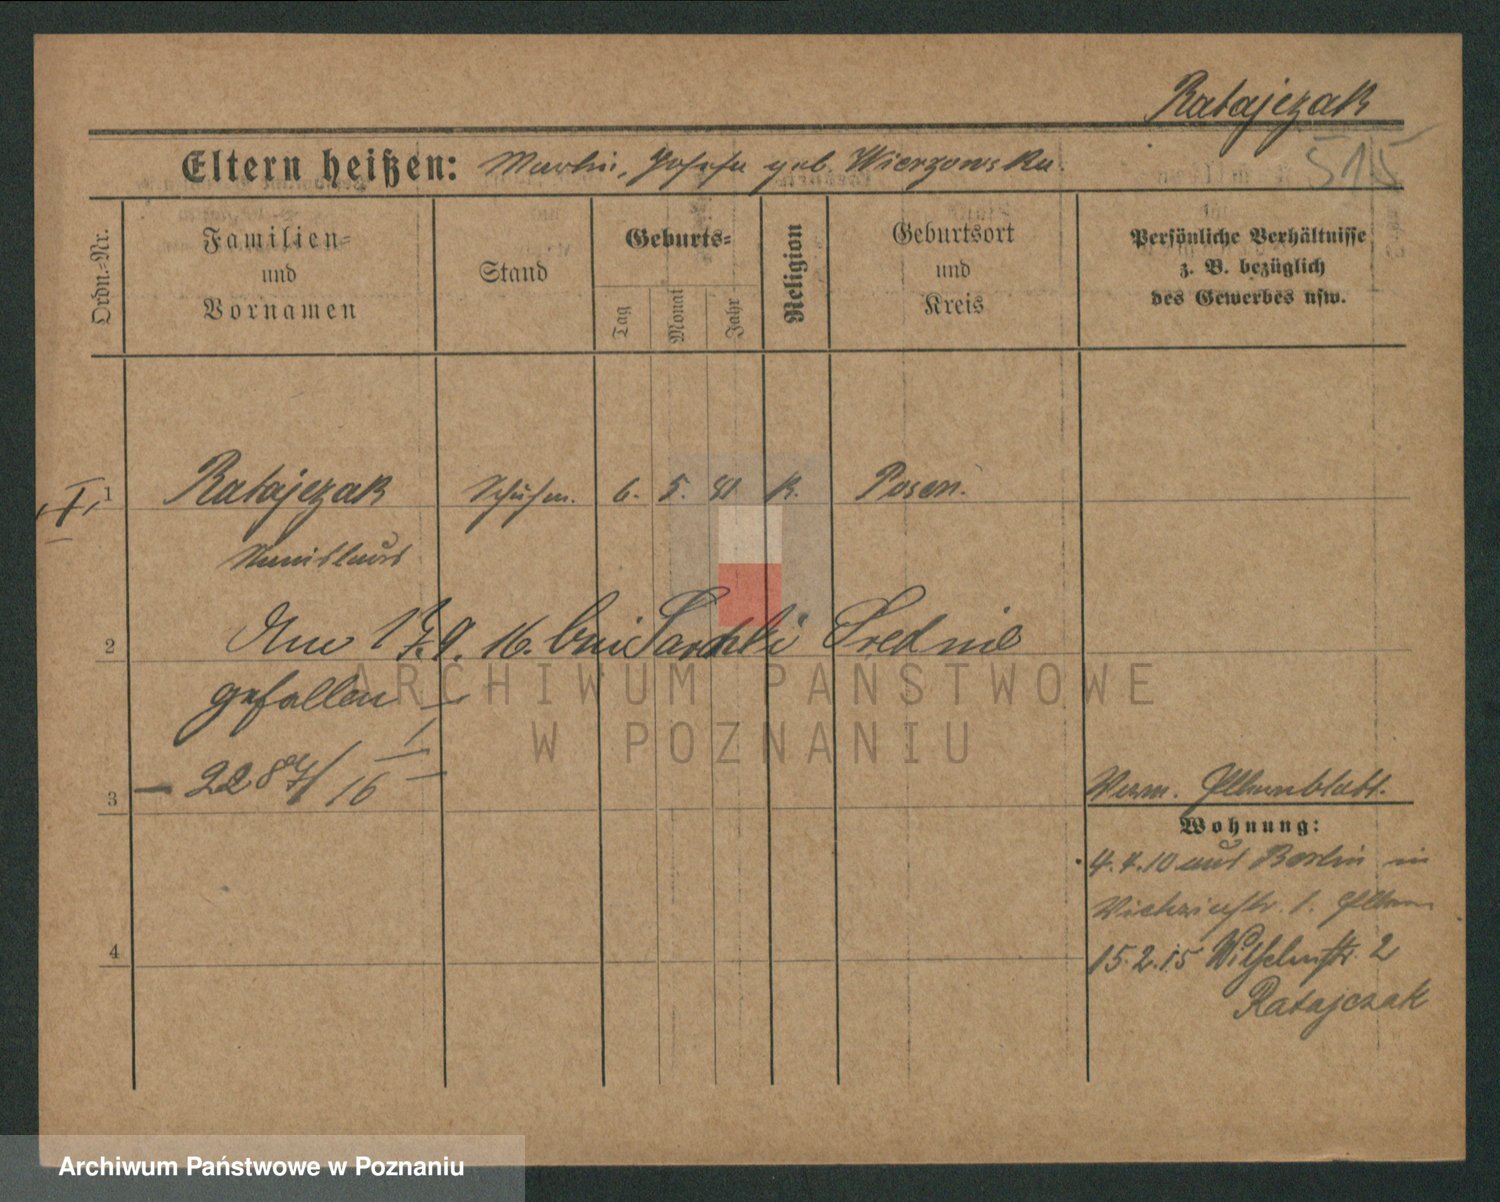 Ratajczak
515
Eltern heißen: Martin, Josefa geb. Wierzowska.
Ordn.-Nr.
Familien-
und
Vornamen
Stand
Geburts-
Tag
Monat
Jahr
Religion
Geburtsort
und
Kreis
Persönliche Verhältnisse
z. B. bezüglich
des Gewerbes usw.
1 Ratajczak Schuhm. 6. 5. 81 K. Posen.
Stanislaus
2 Am 17.9.16. bei Sarnki Srednie
gefallen
3 - 2287/16
Wohnung:
4.7.10 aus Berlin in
15.2.15 Wilhelmstr. 2
Ratajczak
4
ARCHIWUM PAŃSTWOWE
W POZNANIU
Archiwum Państwowe w Poznaniu